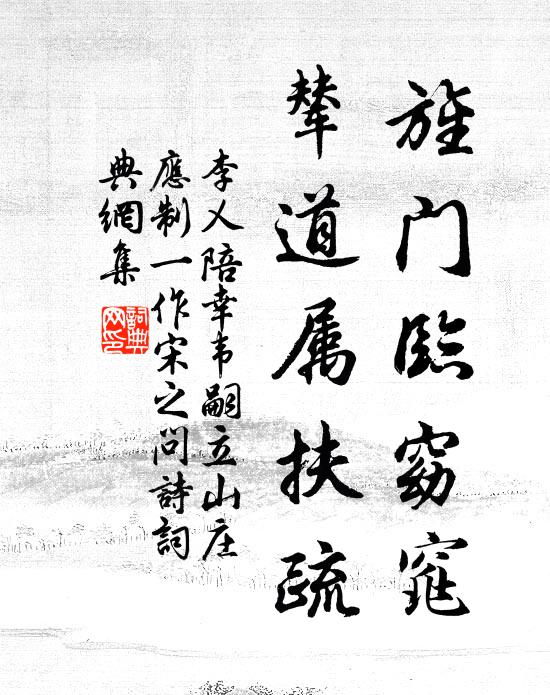 旌门臨窈窕
輦道属扶疏
李乂陪幸韦嗣立山庄
應制一作宋之问詩詞
典網集
詞典网印